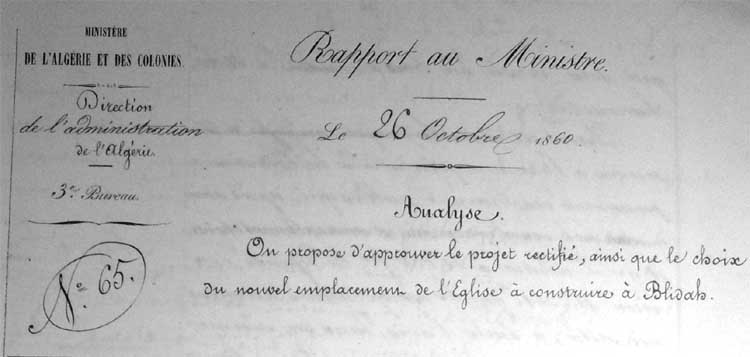 MINISTÈRE
DE L'ALGÉRIE ET DES COLONIES.
Direction
de l'administration
de l'Algérie.
3e Bureau.
No 65.
Rapport au Ministre.
Le 26 Octobre 1860.
Analyse.
On propose d'approuver le projet rectifié, ainsi que le choix
du nouvel emplacement de l'Eglise à construire à Blidah.